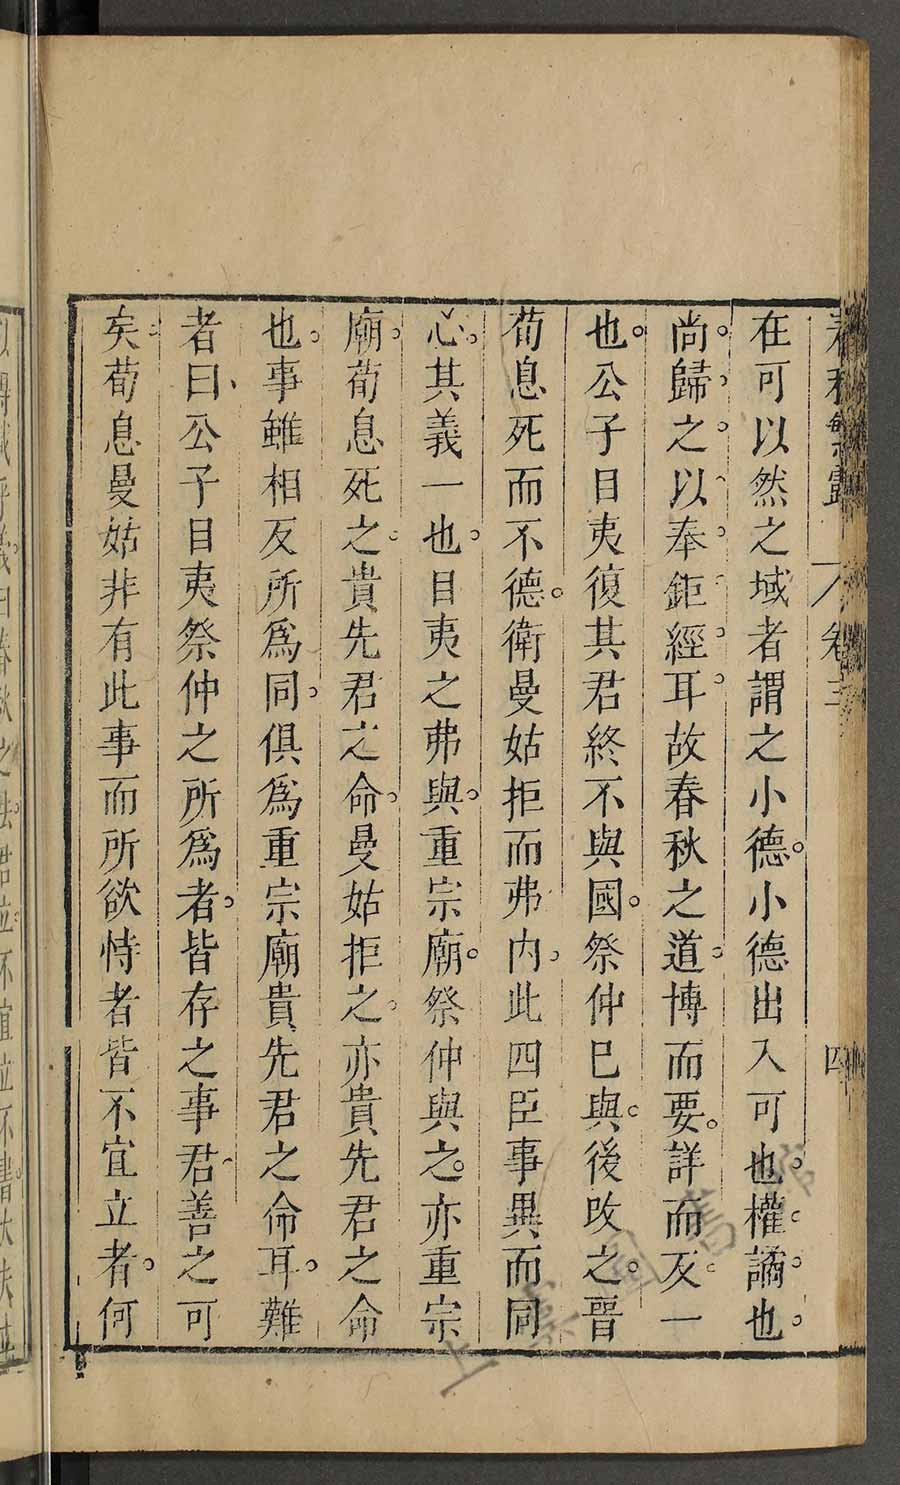 春秋繁露 卷三 四
在可以然之域者謂之小德小德出入可也權譎也
尚歸之以奉鉅經耳故春秋之道博而要詳而反一
也公子目夷復其君終不與國祭仲已與後改之晉
荀息死而不德衛曼姑拒而弗內此四臣事異而同
心其義一也目夷之弗與重宗廟祭仲與之亦重宗
廟荀息死之貴先君之命曼姑拒之亦貴先君之命
也事雖相反所爲同俱爲重宗廟貴先君之命耳難
者曰公子目夷祭仲之所爲者皆存之事君善之可
矣荀息曼姑非有此事而所欲恃者皆不宜立者何